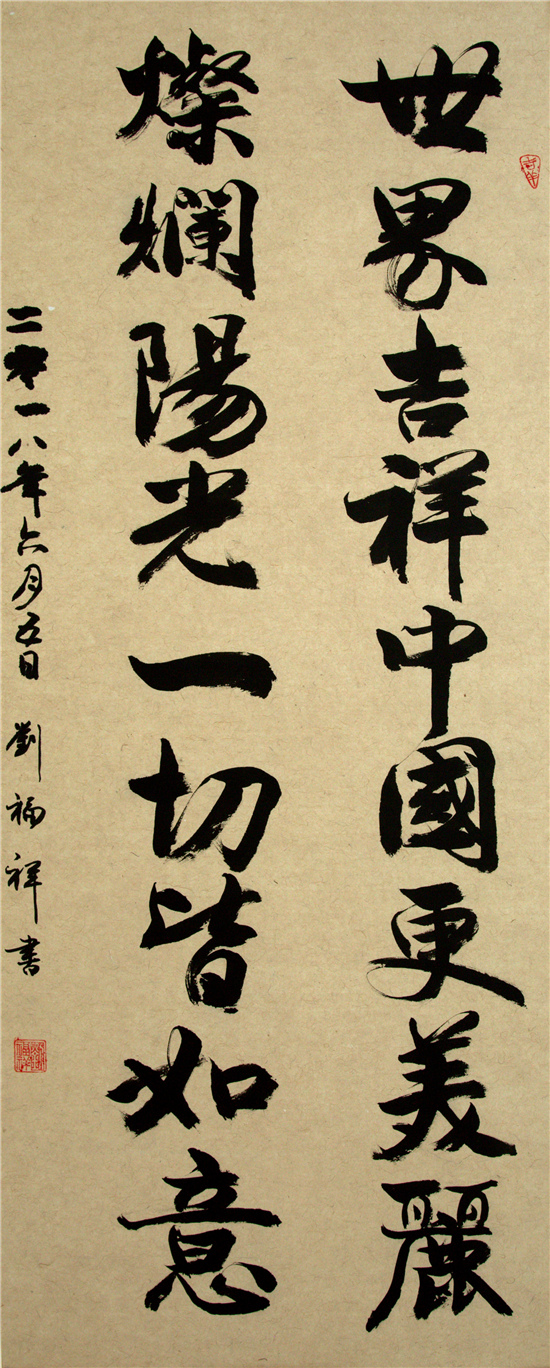 世界吉祥中國更美麗
燦爛陽光一切皆如意
二零一八年六月五日 劉福祥書
吉祥